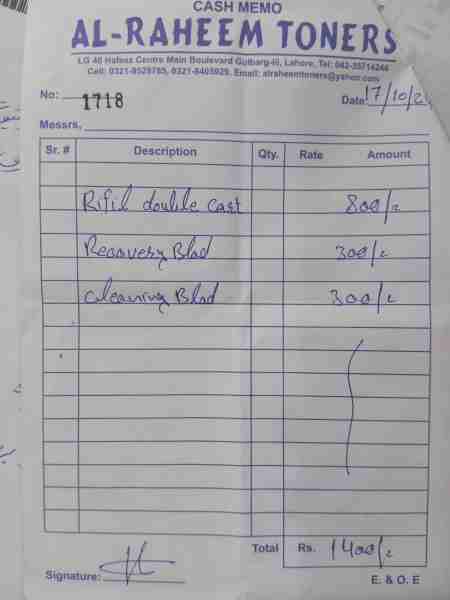 CASH MEMO
AL-RAHEEM TONERS
LG 40 Hafeez Centre Main Boulevard Gulbarg-III, Lahore, Tel: 042-35714244
Cell: 0321-9529785, 0321-8403929. Email: alraheemtoners@yahoo.com
No: 1718 Date: 17/10/2
Messrs,
Sr. # Description Qty. Rate Amount
Rifil double cast 800/=
Recovery Blad 300/=
Cleaning Blad 300/=
Total Rs. 1400/=
Signature:
E. & O. E